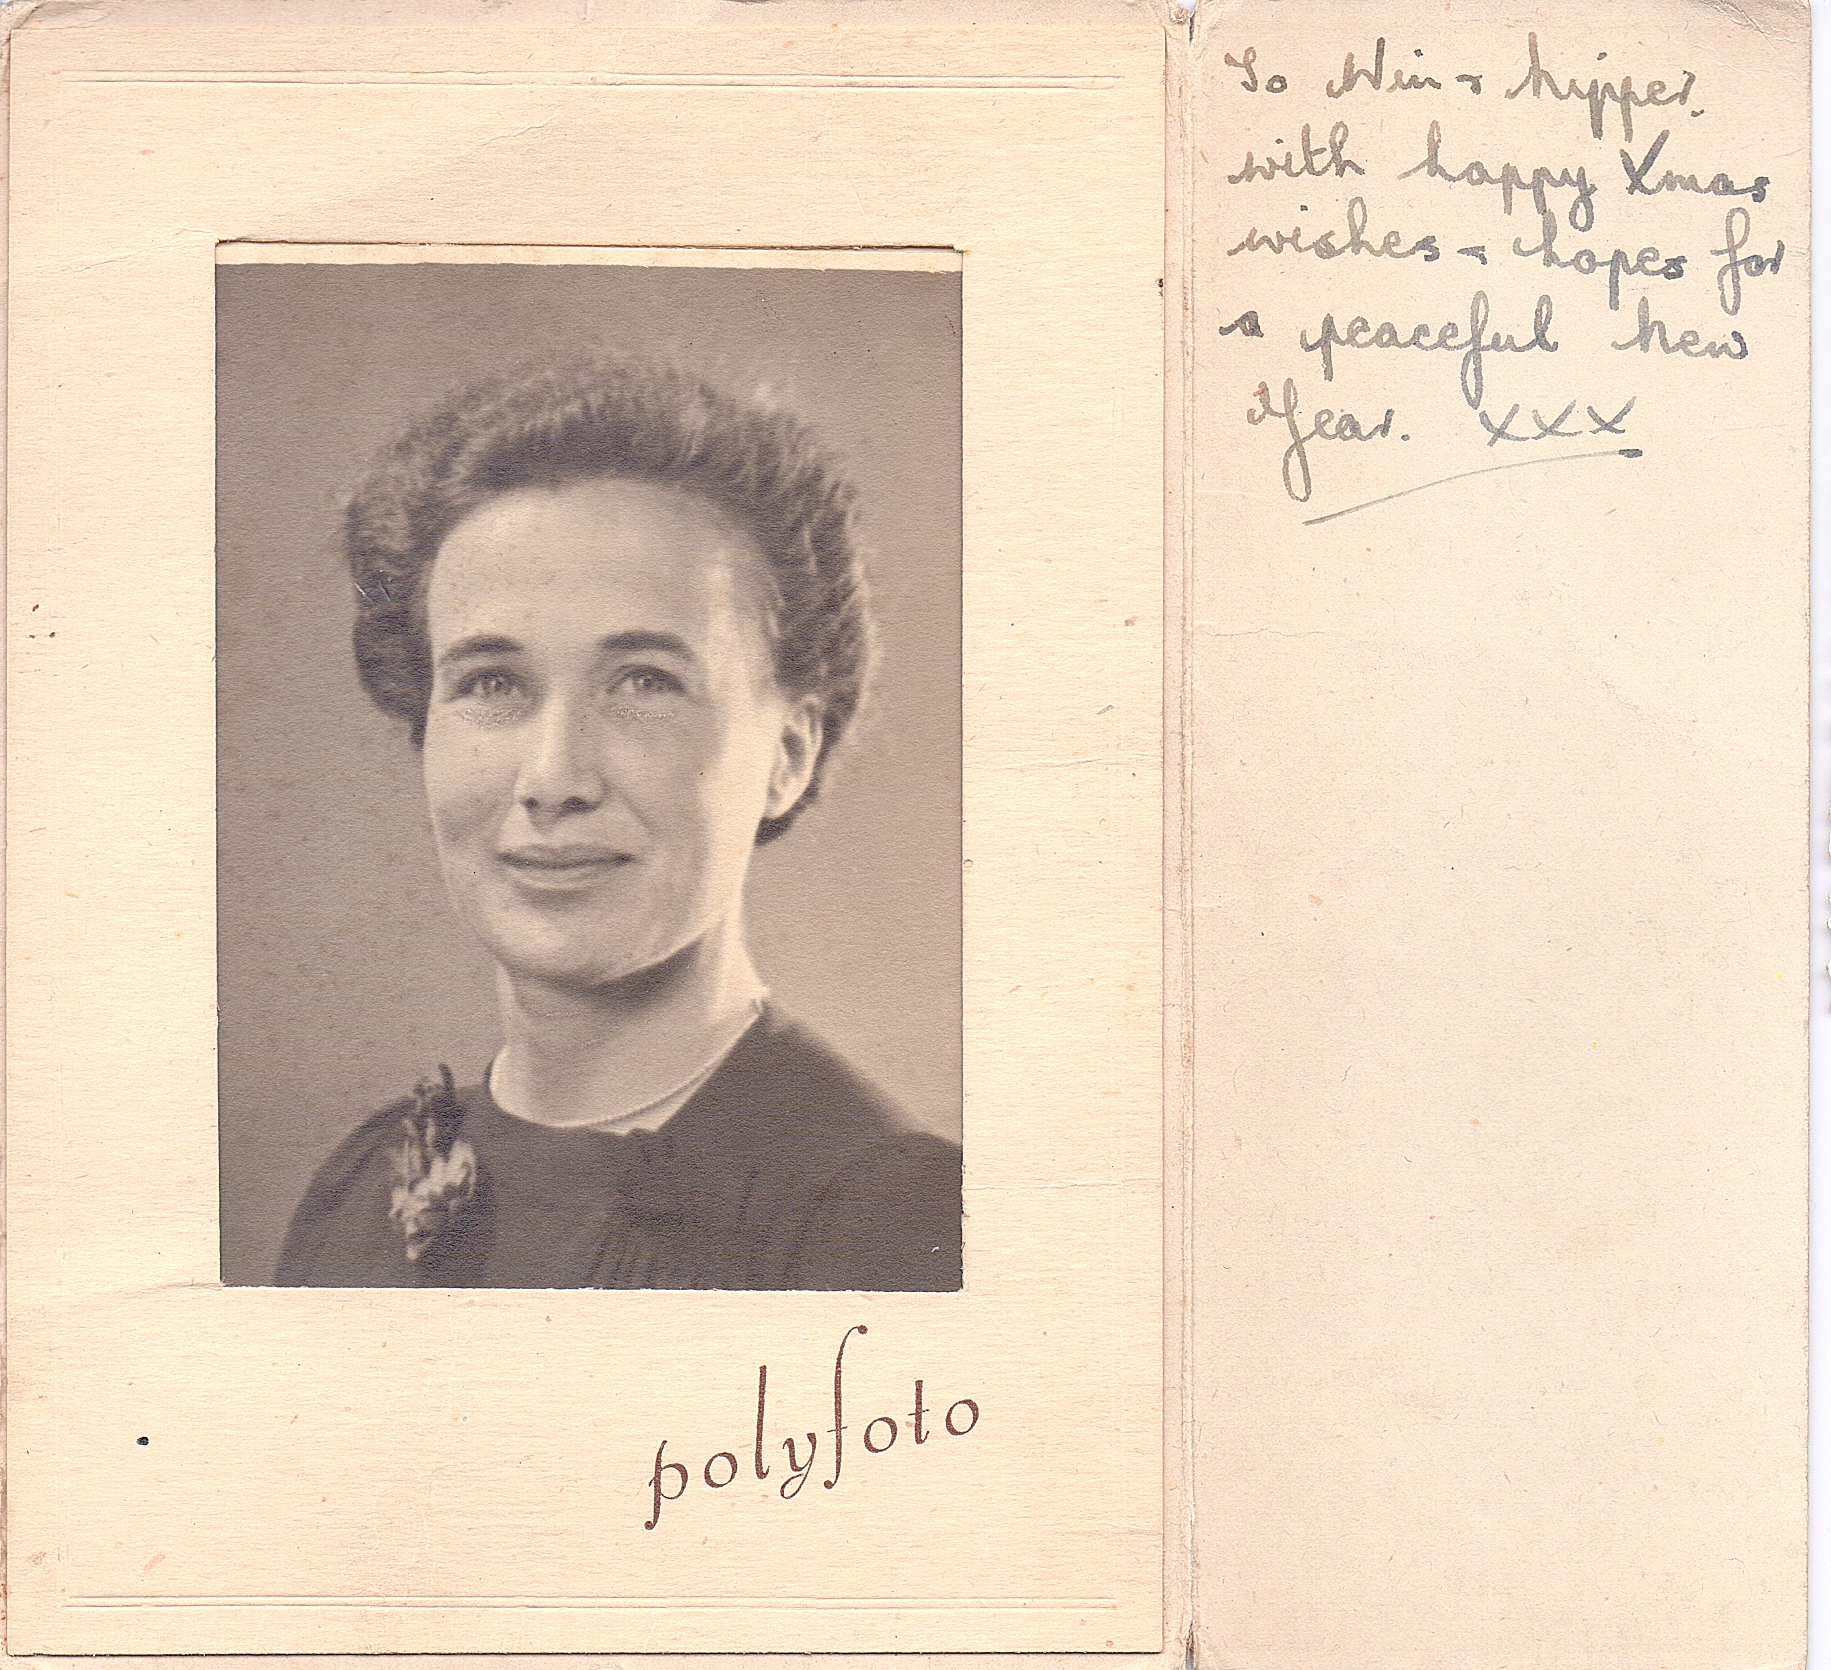 To Win + Nipper.
with happy Xmas
wishes + hopes for
a peaceful New
Year. XXX
polyfoto